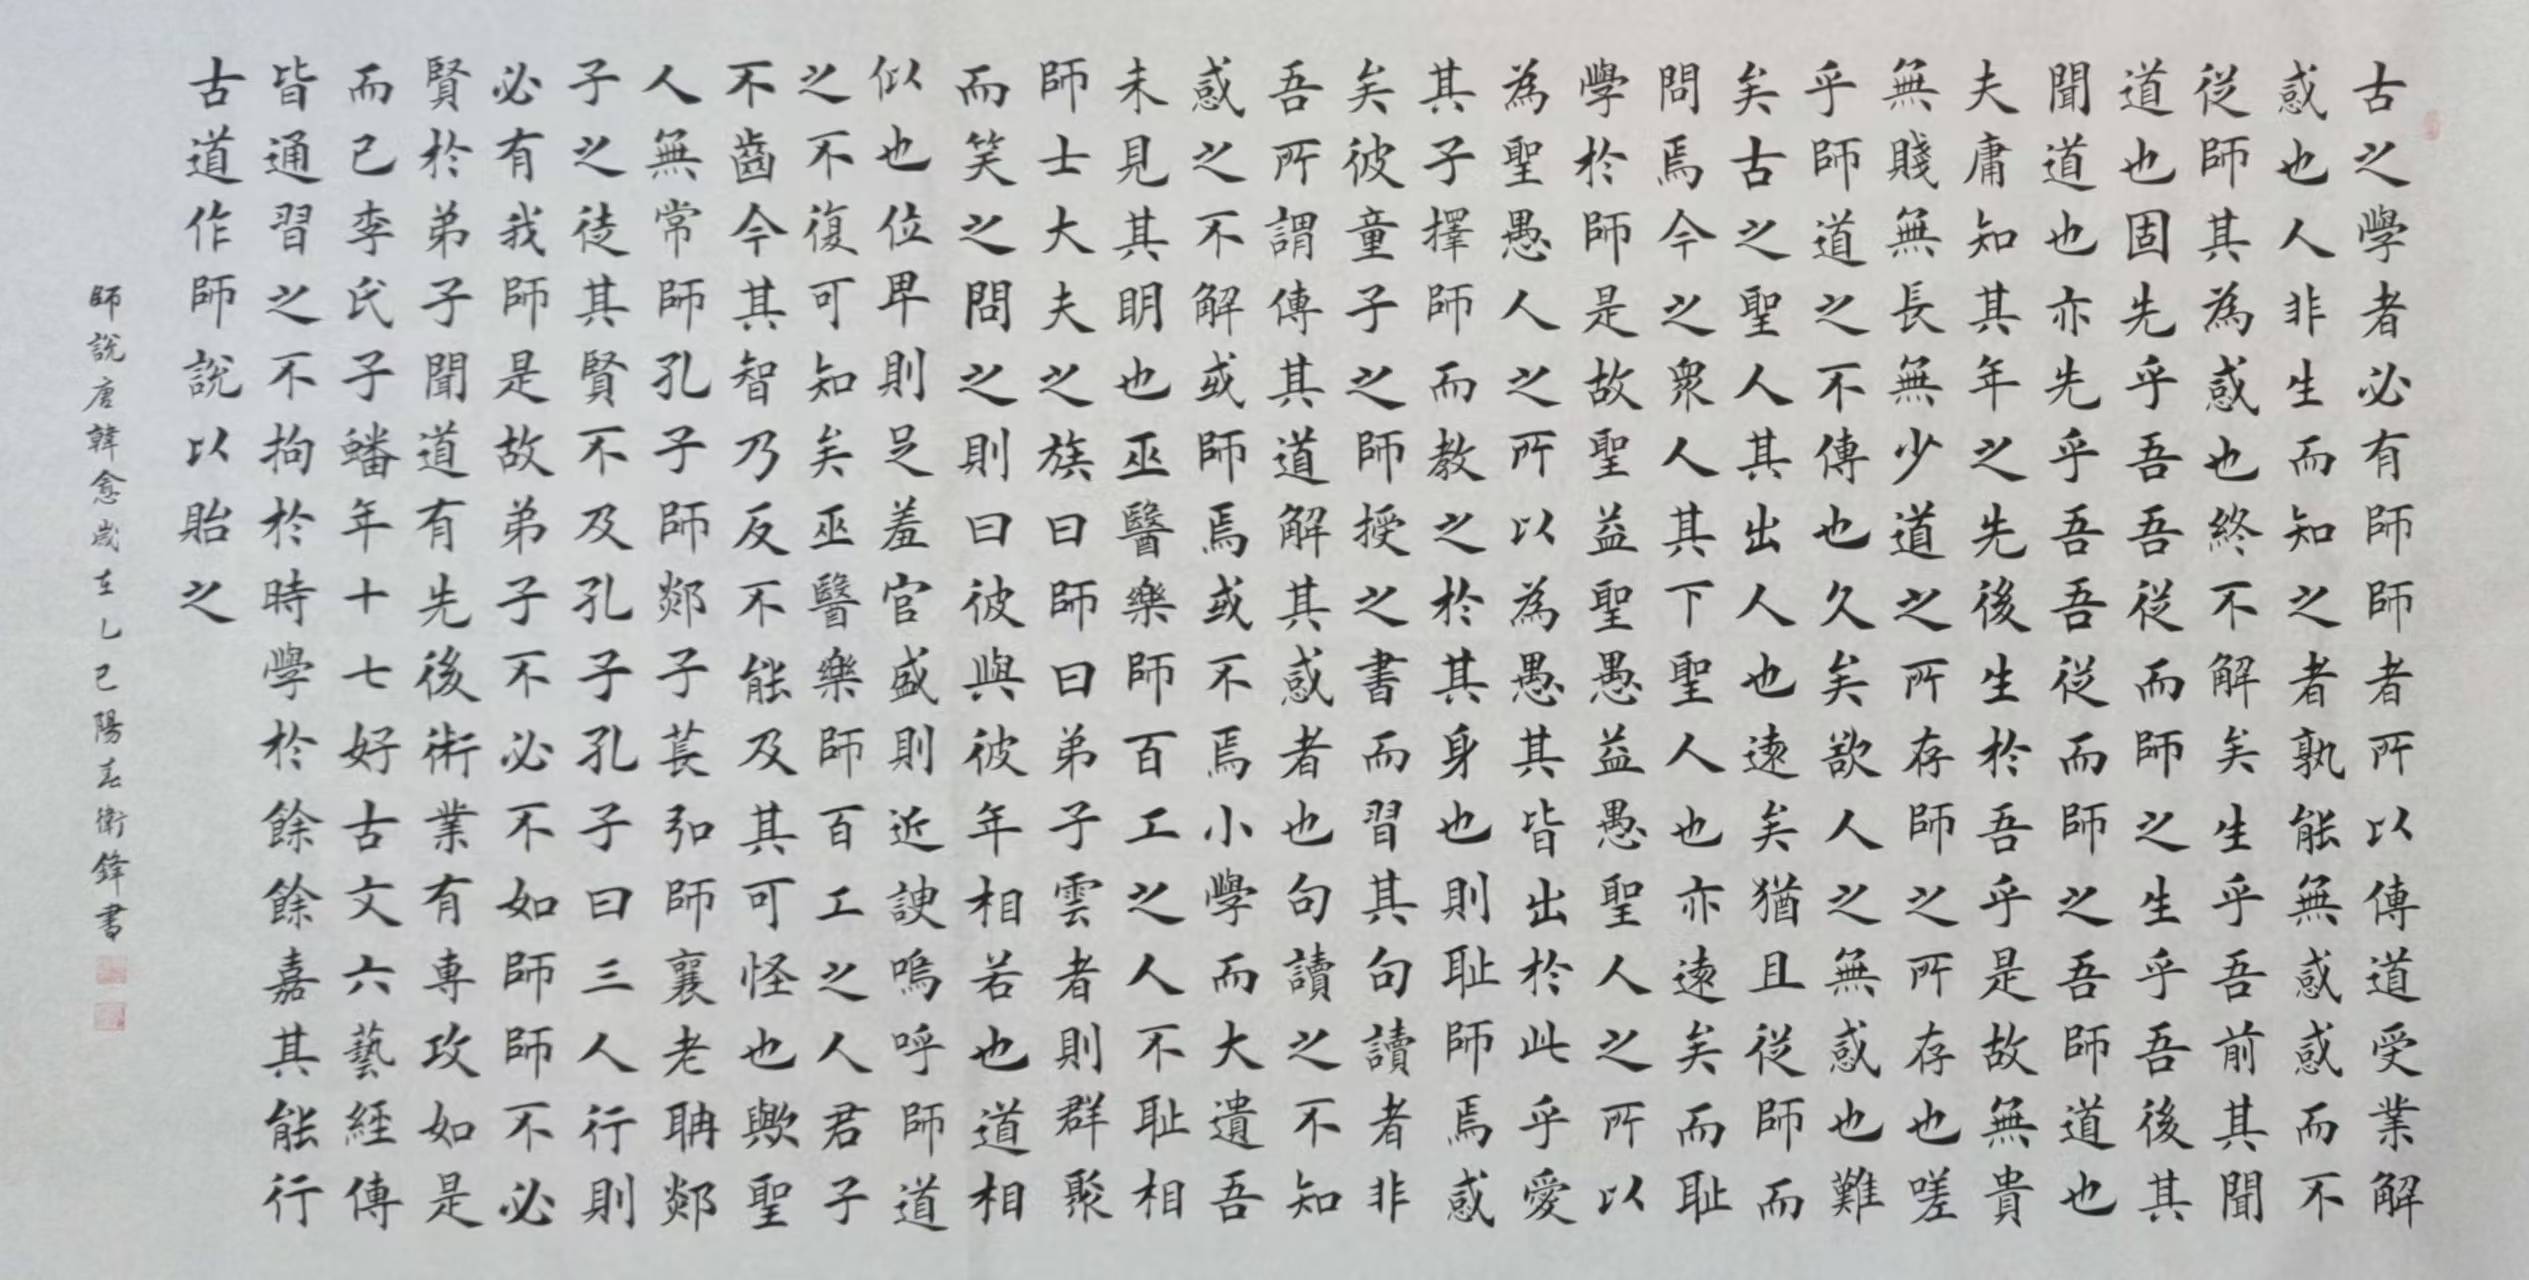 古之學者必有師師者所以傳道受業解
惑也人非生而知之者孰能無惑惑而不
從師其為惑也終不解矣生乎吾前其聞
道也固先乎吾吾從而師之生乎吾後其
聞道也亦先乎吾吾從而師之吾師道也
夫庸知其年之先後生於吾乎是故無貴
無賤無長無少道之所存師之所存也嗟
乎師道之不傳也久矣欲人之無惑也難
矣古之聖人其出人也遠矣猶且從師而
問焉今之衆人其下聖人也亦遠矣而耻
學於師是故聖益聖愚益愚聖人之所以
為聖愚人之所以為愚其皆出於此乎愛
其子擇師而教之於其身也則耻師焉惑
矣彼童子之師授之書而習其句讀者非
吾所謂傳其道解其惑者也句讀之不知
惑之不解或師焉或不焉小學而大遺吾
未見其明也巫醫樂師百工之人不耻相
師士大夫之族曰師曰弟子雲者則群聚
而笑之問之則曰彼與彼年相若也道相
似也位卑則足羞官盛則近諛嗚呼師道
之不復可知矣巫醫樂師百工之人君子
不齒今其智乃反不能及其可怪也歟聖
人無常師孔子師郯子萇弘師襄老聃郯
子之徒其賢不及孔子孔子曰三人行則
必有我師是故弟子不必不如師師不必
賢於弟子聞道有先後術業有專攻如是
而已李氏子蟠年十七好古文六藝經傳
皆通習之不拘於時學於餘餘嘉其能行
古道作師說以貽之
師說唐韓愈歲在乙巳陽春衛鋒書